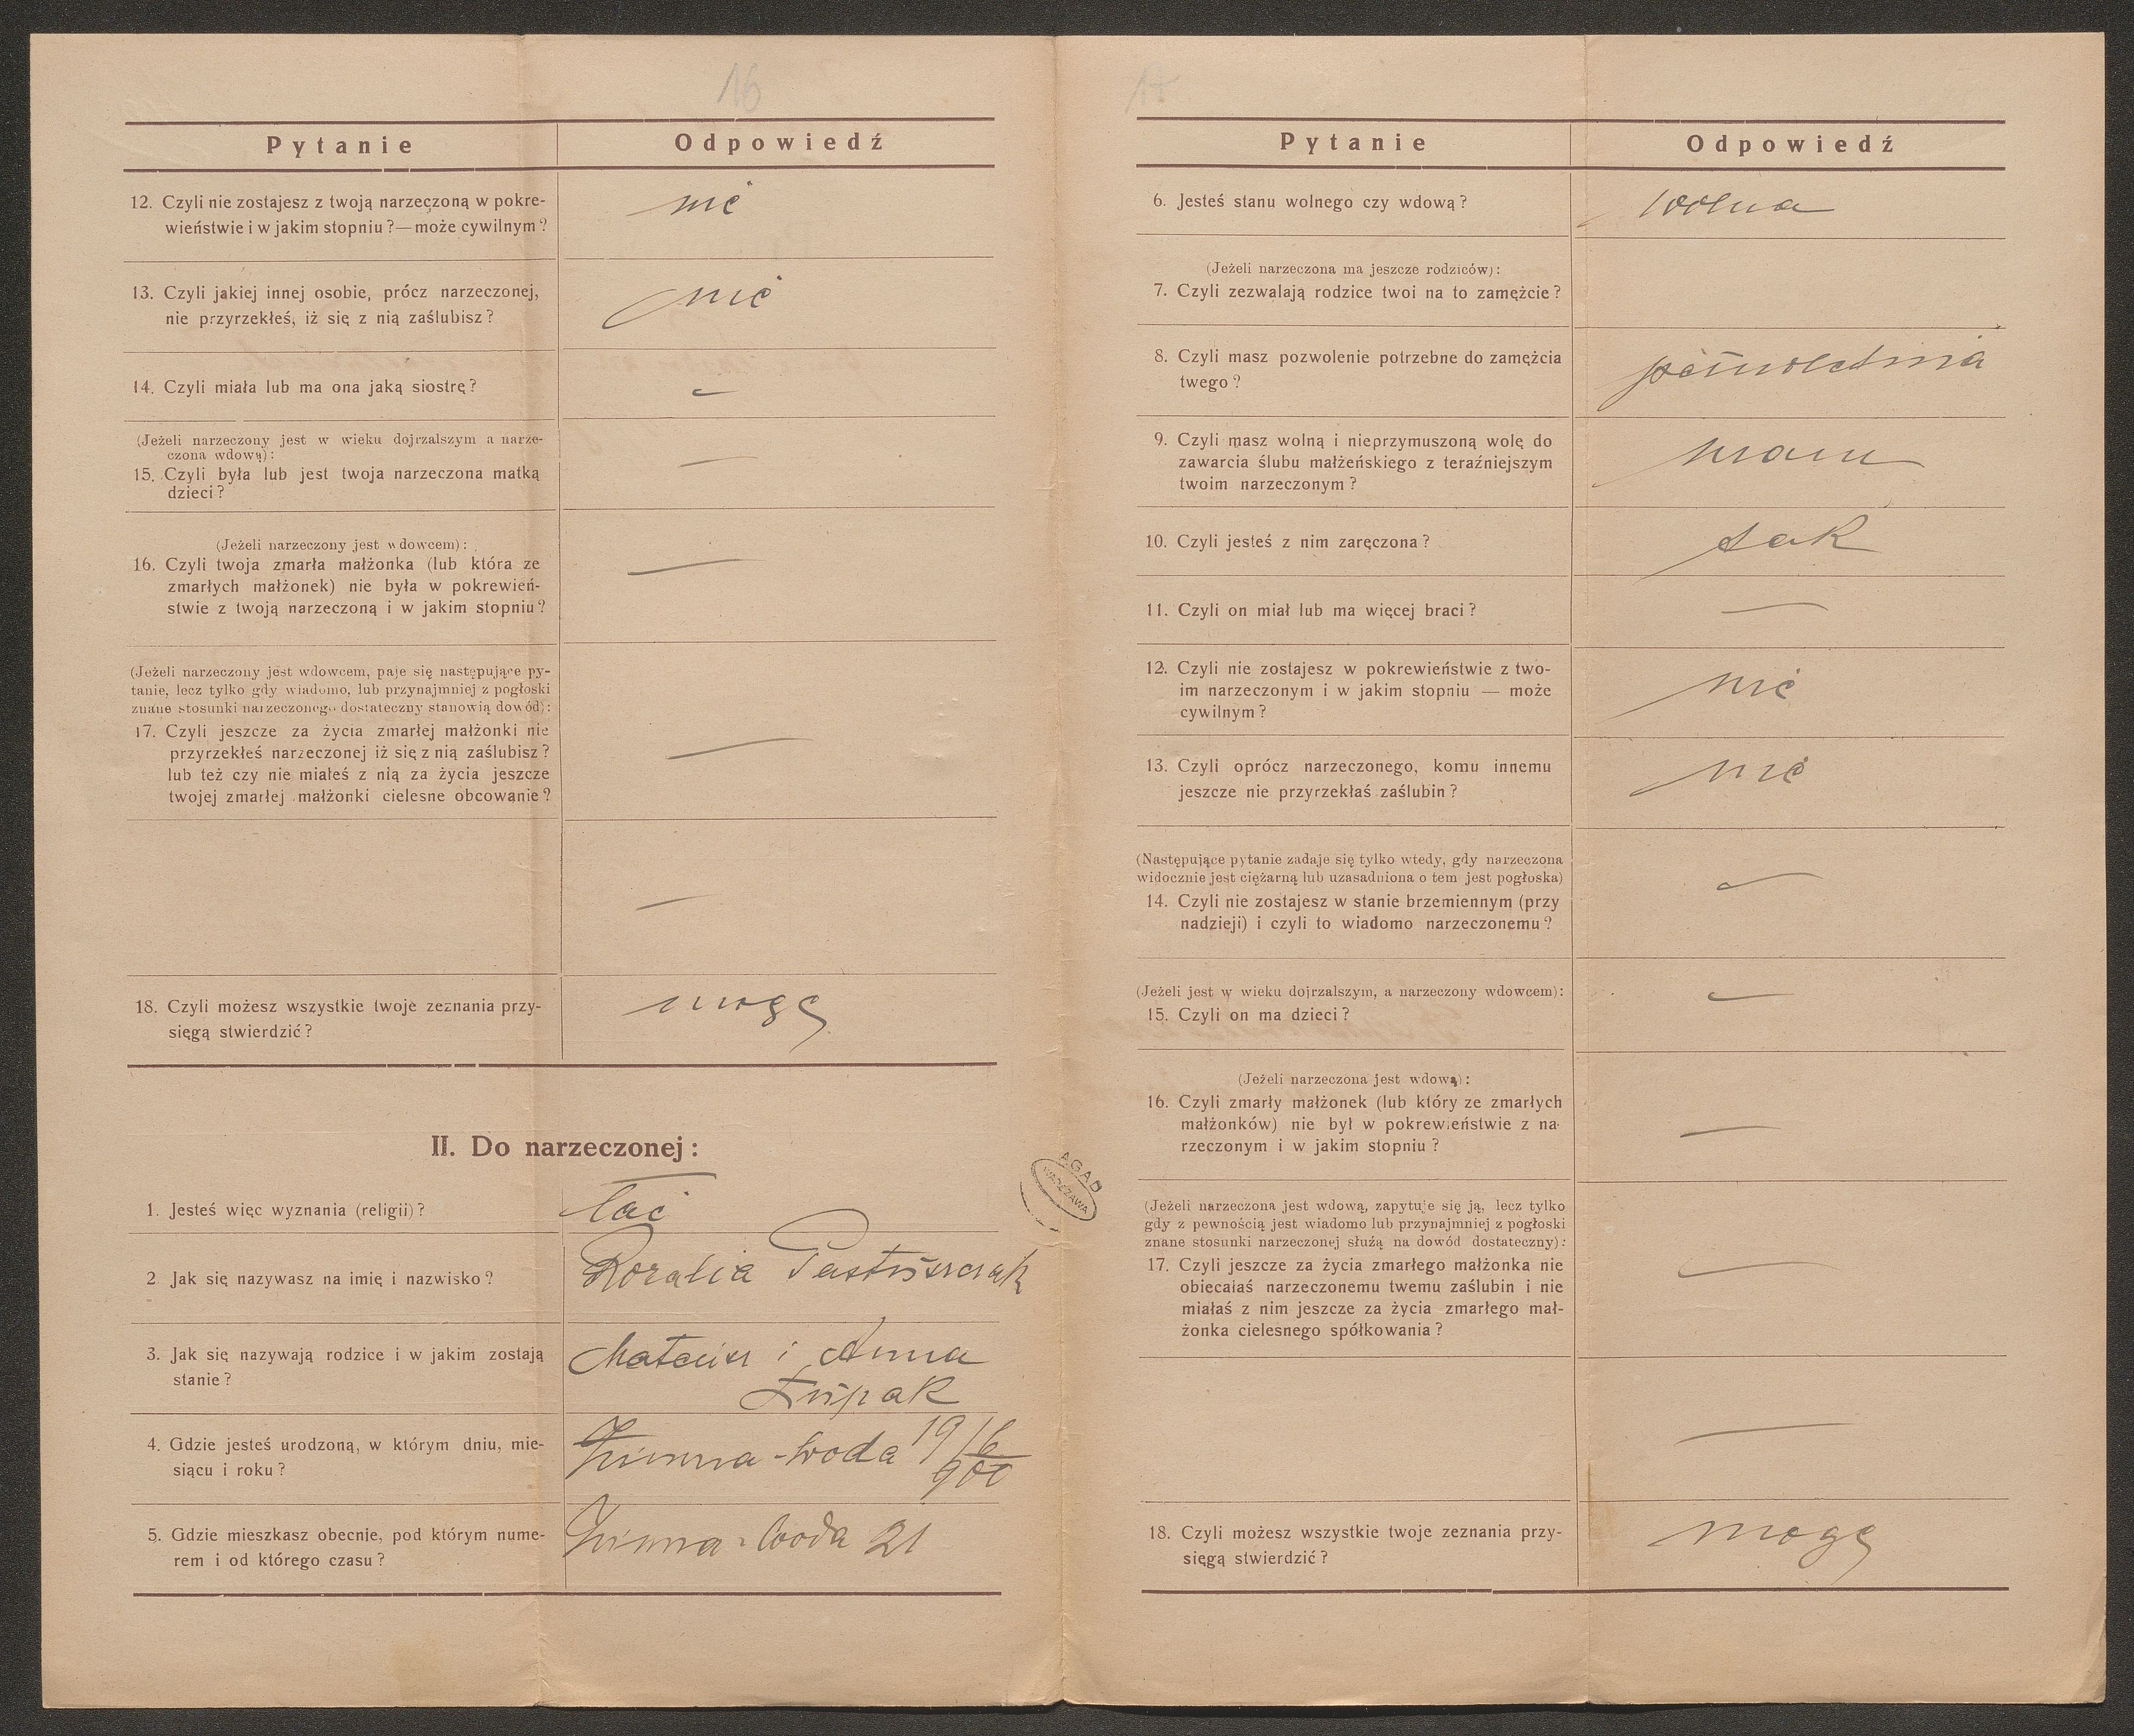 16
Pytanie
Odpowiedź
12. Czyli nie zostajesz z twoją narzeczoną w pokre-
wieństwie i w jakim stopniu ?—może cywilnym ?
nie
13. Czyli jakiej innej osobie, prócz narzeczonej,
nie przyrzekłeś, iż się z nią zaślubisz ?
nie
14. Czyli miała lub ma ona jaką siostrę ?
—
(Jeżeli narzeczony jest w wieku dojrzalszym a narze-
czona wdową) :
15. Czyli była lub jest twoja narzeczona matką
dzieci ?
—
(Jeżeli narzeczony jest wdowcem) :
16. Czyli twoja zmarła małżonka (lub która ze
zmarłych małżonek) nie była w pokrewień-
stwie z twoją narzeczoną i w jakim stopniu ?
—
(Jeżeli narzeczony jest wdowcem, daje się następujące py-
tanie, lecz tylko gdy wiadomo, lub przynajmniej z pogłoski
znane stosunki narzeczonego dostateczny stanowią dowód) :
17. Czyli jeszcze za życia zmarłej małżonki nie
przyrzekłeś narzeczonej iż się z nią zaślubisz ?
lub też czy nie miałeś z nią za życia jeszcze
twojej zmarłej małżonki cielesne obcowanie ?
—
—
18. Czyli możesz wszystkie twoje zeznania przy-
sięgą stwierdzić ?
mogę
II. Do narzeczonej :
1. Jesteś więc wyznania (religii) ?
łać
2 Jak się nazywasz na imię i nazwisko ?
Rozalia Pastuszczak
3. Jak się nazywają rodzice i w jakim zostają
stanie ?
Mateusz i Anna
Łupak
4. Gdzie jesteś urodzoną, w którym dniu, mie-
siącu i roku ?
Zimna-Woda 19/6
900
5. Gdzie mieszkasz obecnie, pod którym nume-
rem i od którego czasu ?
Zimna-Woda 21
AGAD
WARSZAWA
17
Pytanie
Odpowiedź
6. Jesteś stanu wolnego czy wdową ?
wolna
(Jeżeli narzeczona ma jeszcze rodziców) :
7. Czyli zezwalają rodzice twoi na to zamężcie ?
8. Czyli masz pozwolenie potrzebne do zamężcia
twego ?
pełnoletnia
9. Czyli masz wolną i nieprzymuszoną wolę do
zawarcia ślubu małżeńskiego z teraźniejszym
twoim narzeczonym ?
mam
10. Czyli jesteś z nim zaręczona ?
tak
11. Czyli on miał lub ma więcej braci ?
—
12. Czyli nie zostajesz w pokrewieństwie z two-
im narzeczonym i w jakim stopniu — może
cywilnym ?
nie
13. Czyli oprócz narzeczonego, komu innemu
jeszcze nie przyrzekłaś zaślubin ?
nie
(Następujące pytanie zadaje się tylko wtedy, gdy narzeczona
widocznie jest ciężarną lub uzasadniona o tem jest pogłoska)
14. Czyli nie zostajesz w stanie brzemiennym (przy
nadzieji) i czyli to wiadomo narzeczonemu ?
—
(Jeżeli jest w wieku dojrzalszym, a narzeczony wdowcem) :
15. Czyli on ma dzieci ?
—
(Jeżeli narzeczona jest wdową) :
16. Czyli zmarły małżonek (lub który ze zmarłych
małżonków) nie był w pokrewieństwie z na-
rzeczonym i w jakim stopniu ?
—
(Jeżeli narzeczona jest wdową, zapytuje się ją, lecz tylko
gdy z pewnością jest wiadomo lub przynajmniej z pogłoski
znane stosunki narzeczonej służą na dowód dostateczny) :
17. Czyli jeszcze za życia zmarłego małżonka nie
obiecałaś narzeczonemu twemu zaślubin i nie
miałaś z nim jeszcze za życia zmarłego mał-
żonka cielesnego spółkowania ?
—
—
18. Czyli możesz wszystkie twoje zeznania przy-
sięgą stwierdzić ?
mogę